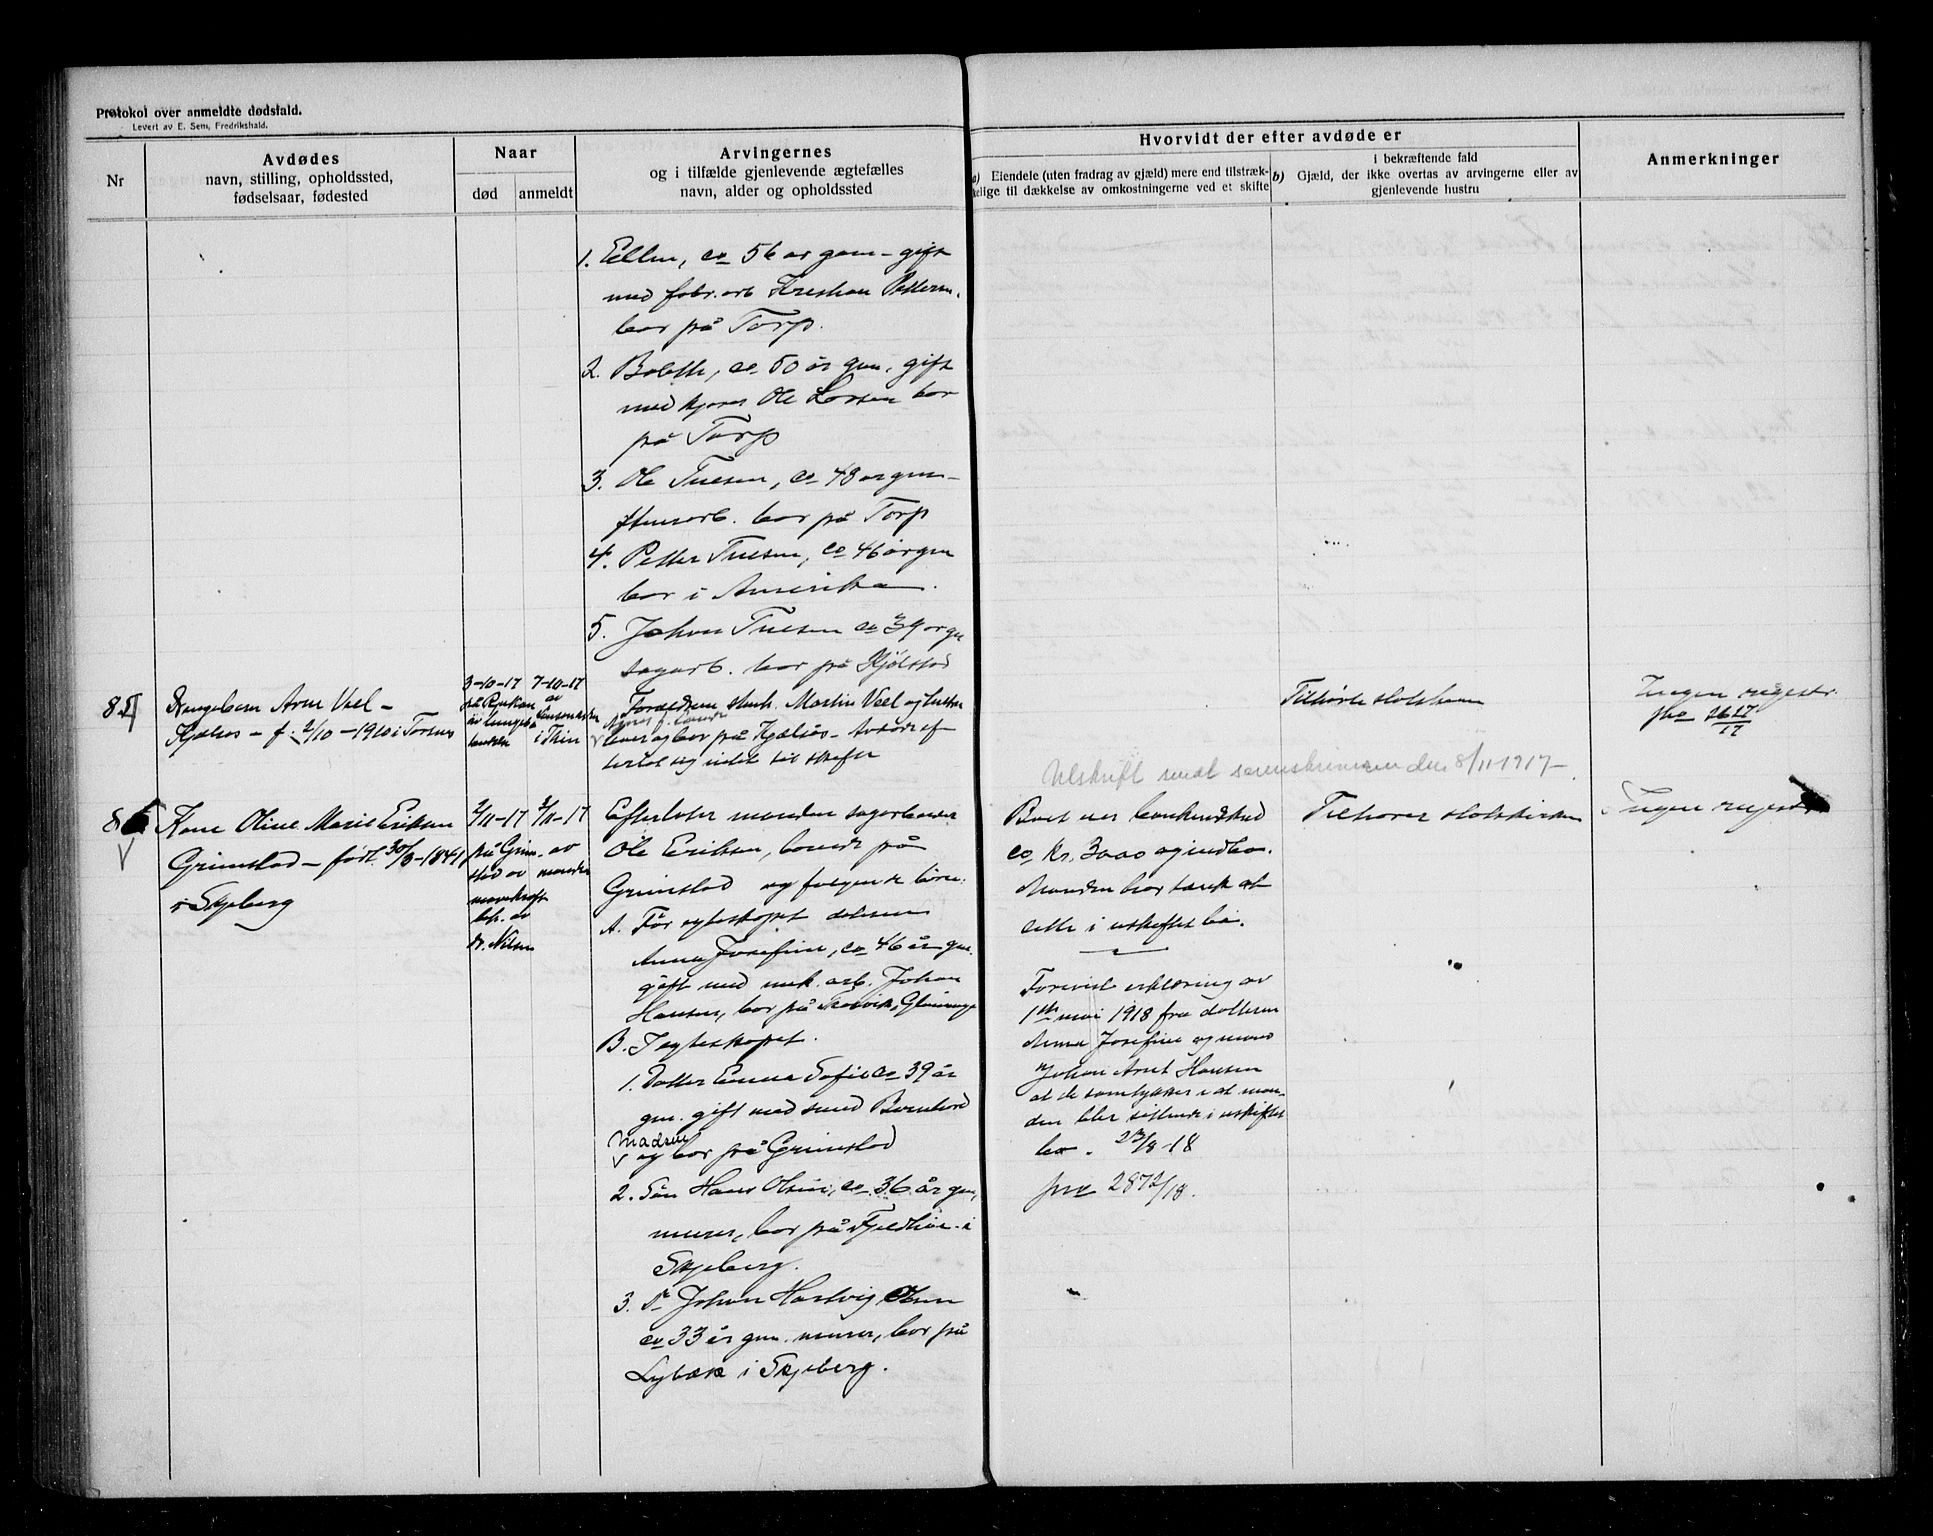 Protokol over anmeldte dødsfald.
Levert av E. Sem, Fredrikshald.
Nr
Avdødes
navn, stilling, opholdssted,
fødselsaar, fødested
Naar
død
anmeldt
Arvingernes
og i tilfælde gjenlevende ægtefælles
navn, alder og opholdssted
Hvorvidt der efter avdøde er
a) Eiendele (uten fradrag av gjæld) mere end tilstræk-
kelige til dækkelse av omkostningerne ved et skifte
i bekræftende fald
b) Gjæld, der ikke overtas av arvingerne eller av
gjenlevende hustru
Anmerkninger
1. Ellen, ca 56 år gam - gift
med fabr. arb Kristian Pettersen
bor på Torp.
2. Bolette, ca 50 år gm, gift
med kjører Ole Larsen bor
på Torp
3. Ole Tuesen, ca 48 år gm -
bor på Torp
4. Petter Tuesen, ca 46 år gm
bor i Amerika.
5. Johan Tuesen ca 39 år gm
sagarb. bor på Kjølstad
Pngebarn Arne Veel -
Kjælsøs - f. 2/10 - 1910 i Torsnes
3-10-17
7-10-17
av
Forældrene Martin Veel og hustru
bor på Kjælsøs - Avdøde ef-
terlot sig intet til skifte
Tilhørte statskirken
Ingen
Utskrift sendt sorenskriveren den 8/11-1917
86
Kone Oline Marie Eriksen
Grimstad - født 30/8-1841
i Skjeberg
2/11-17
på Grim-
stad av
av
dr. Nilsen
3/11-17
av
manden
Efterlater manden sagarbeider
Ole Eriksen, boende på
Grimstad og følgende børn:
A. Før egteskapet datteren
Anna Josefine, ca 46 år gm.
gift med mek. arb. Johan
Hansen, bor på
B. I egteskapet.
1. Datter Emma Sofie ca 39 år
gm. gift med smed Bernhard
Madsen
og bor på Grimstad
2. Søn Hans Olsen, ca 36 år gm,
murer, bor på i
Skjeberg.
3. Johan Hartvig Olsen
ca 33 år gm. murer, bor på
Lybæk i Skjeberg.
Boet
ca kr. 3000 og indbo.
Manden har tænkt at
sitte i uskiftet bo.
Forevist erklæring av
1ste mai 1918 fra datteren
Anna Josefine og mand
Johan Arnt Hansen
at de samtykker i at man-
den blir sittende i uskiftet
bo. 23/8-18
2872/18.
Tilhører statskirken
Ingen